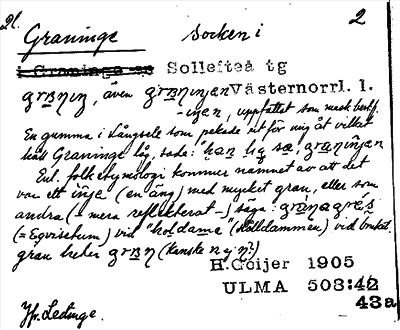 Pl. 2
Graninge socken i
Graninge sn Sollefteå tg
grɑnɪŋ, även grɑnɪŋen Västernorrl. l.
-ɪŋen, uppfattat som mask. best. f.
En gumma i Långsele som pekade ut för mig åt vilket
håll Graninge låg, sade: "han lig sæ, granɪŋen
Enl. folketymologi kommer namnet av att det
var ett inje (en äng) med mycket gran, eller som
andra (= mera reflekterat -) säga: granagræs
(= Equisetum) vid "holdamɑ" (Hålldammen) vid bruket.
gran heter grɑn (kanske n ej n?)
H.Göijer 1905
ULMA 503:42
43a
Jfr. Ledinge.